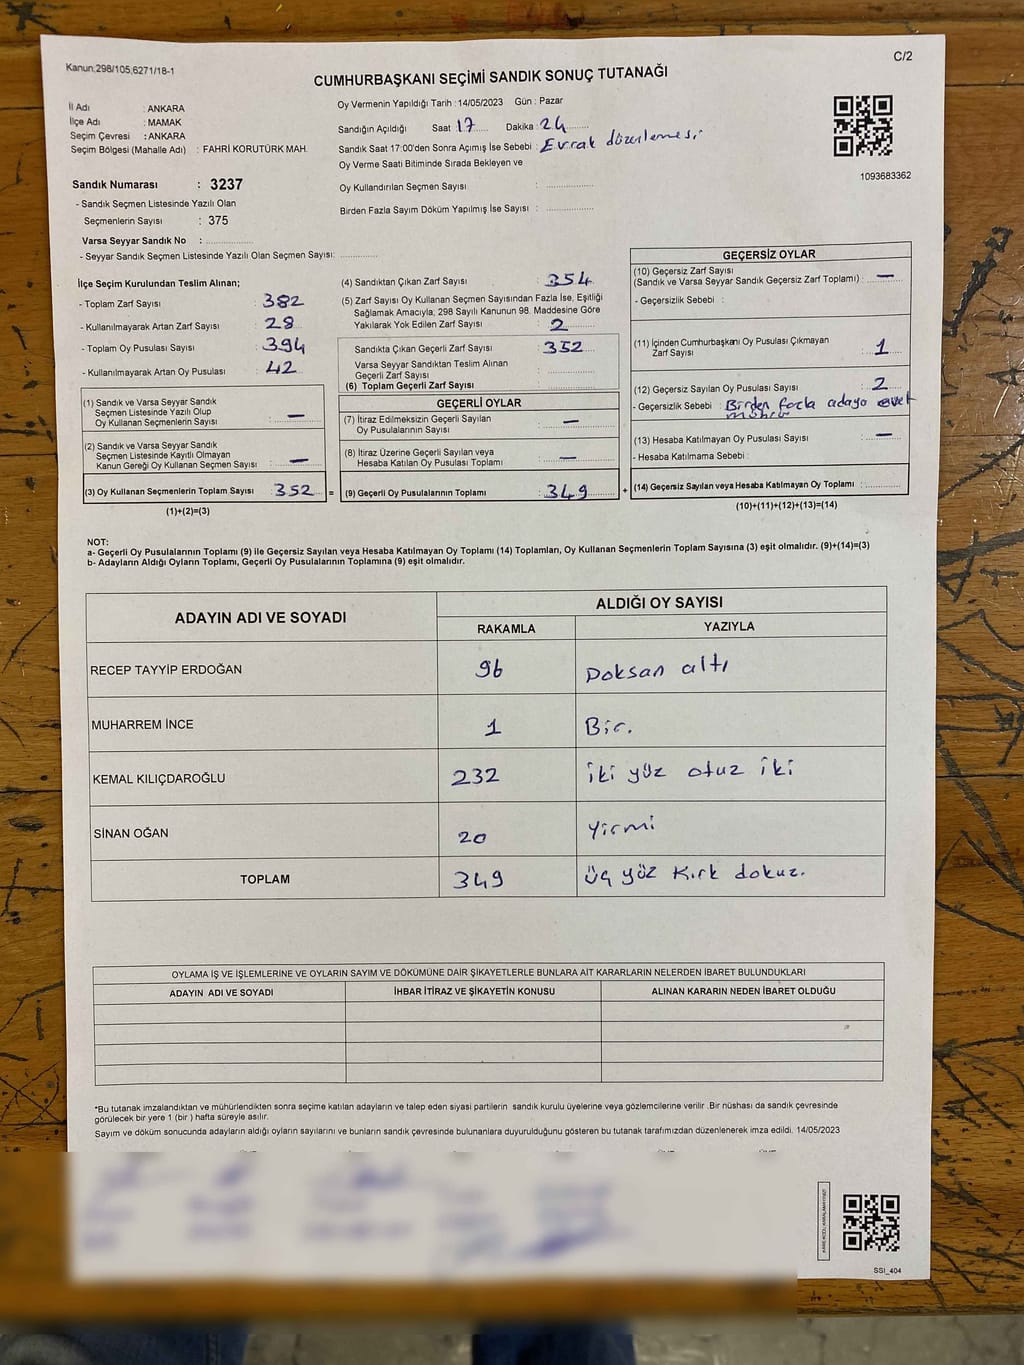 Kanun;298/105,6271/18-1
C/2
CUMHURBAŞKANI SEÇİMİ SANDIK SONUÇ TUTANAĞI
İl Adı : ANKARA
İlçe Adı : MAMAK
Seçim Çevresi : ANKARA
Seçim Bölgesi (Mahalle Adı) : FAHRİ KORUTÜRK MAH.
Oy Vermenin Yapıldığı Tarih : 14/05/2023 Gün : Pazar
Sandığın Açıldığı Saat 17 Dakika : 24
Sandık Saat 17:00'den Sonra Açımış İse Sebebi : Evrak düzenlemesi
Oy Verme Saati Bitiminde Sırada Bekleyen ve
Oy Kullandırılan Seçmen Sayısı :
Birden Fazla Sayım Döküm Yapılmış İse Sayısı :
1093683362
Sandık Numarası : 3237
- Sandık Seçmen Listesinde Yazılı Olan
Seçmenlerin Sayısı : 375
Varsa Seyyar Sandık No :
- Seyyar Sandık Seçmen Listesinde Yazılı Olan Seçmen Sayısı:
İlçe Seçim Kurulundan Teslim Alınan;
- Toplam Zarf Sayısı : 382
- Kullanılmayarak Artan Zarf Sayısı : 28
- Toplam Oy Pusulası Sayısı : 394
- Kullanılmayarak Artan Oy Pusulası : 42
(1) Sandık ve Varsa Seyyar Sandık
Seçmen Listesinde Yazılı Olup
Oy Kullanan Seçmenlerin Sayısı : —
(2) Sandık ve Varsa Seyyar Sandık
Seçmen Listesinde Kayıtlı Olmayan
Kanun Gereği Oy Kullanan Seçmen Sayısı : —
(3) Oy Kullanan Seçmenlerin Toplam Sayısı : 352 =
(1)+(2)=(3)
(4) Sandıktan Çıkan Zarf Sayısı : 354
(5) Zarf Sayısı Oy Kullanan Seçmen Sayısından Fazla İse, Eşitliği
Sağlamak Amacıyla; 298 Sayılı Kanunun 98. Maddesine Göre
Yakılarak Yok Edilen Zarf Sayısı : 2
Sandıkta Çıkan Geçerli Zarf Sayısı : 352
Varsa Seyyar Sandıktan Teslim Alınan
Geçerli Zarf Sayısı :
(6) Toplam Geçerli Zarf Sayısı :
GEÇERLİ OYLAR
(7) İtiraz Edilmeksizin Geçerli Sayılan
Oy Pusulalarının Sayısı : —
(8) İtiraz Üzerine Geçerli Sayılan veya
Hesaba Katılan Oy Pusulası Toplamı : —
(9) Geçerli Oy Pusulalarının Toplamı : 349 +
GEÇERSİZ OYLAR
(10) Geçersiz Zarf Sayısı
(Sandık ve Varsa Seyyar Sandık Geçersiz Zarf Toplamı) : —
- Geçersizlik Sebebi :
(11) İçinden Cumhurbaşkanı Oy Pusulası Çıkmayan
Zarf Sayısı : 1
(12) Geçersiz Sayılan Oy Pusulası Sayısı : 2
- Geçersizlik Sebebi : Birden fazla adaya evet
mührü
(13) Hesaba Katılmayan Oy Pusulası Sayısı : —
- Hesaba Katılmama Sebebi :
(14) Geçersiz Sayılan veya Hesaba Katılmayan Oy Toplamı :
(10)+(11)+(12)+(13)=(14)
NOT:
a- Geçerli Oy Pusulalarının Toplamı (9) ile Geçersiz Sayılan veya Hesaba Katılmayan Oy Toplamı (14) Toplamları, Oy Kullanan Seçmenlerin Toplam Sayısına (3) eşit olmalıdır. (9)+(14)=(3)
b- Adayların Aldığı Oyların Toplamı, Geçerli Oy Pusulalarının Toplamına (9) eşit olmalıdır.
ADAYIN ADI VE SOYADI
ALDIĞI OY SAYISI
RAKAMLA YAZIYLA
RECEP TAYYİP ERDOĞAN 96 Doksan altı
MUHARREM İNCE 1 Bir.
KEMAL KILIÇDAROĞLU 232 iki yüz otuz iki
SİNAN OĞAN 20 Yirmi
TOPLAM 349 üç yüz Kırk dokuz.
OYLAMA İŞ VE İŞLEMLERİNE VE OYLARIN SAYIM VE DÖKÜMÜNE DAİR ŞİKAYETLERLE BUNLARA AİT KARARLARIN NELERDEN İBARET BULUNDUKLARI
ADAYIN ADI VE SOYADI İHBAR İTİRAZ VE ŞİKAYETİN KONUSU ALINAN KARARIN NEDEN İBARET OLDUĞU
*Bu tutanak imzalandıktan ve mühürlendikten sonra seçime katılan adayların ve talep eden siyasi partilerin sandık kurulu üyelerine veya gözlemcilerine verilir .Bir nüshası da sandık çevresinde
görülecek bir yere 1 (bir ) hafta süreyle asılır.
Sayım ve döküm sonucunda adayların aldığı oyların sayılarını ve bunların sandık çevresinde bulunanlara duyurulduğunu gösteren bu tutanak tarafımızdan düzenlenerek imza edildi. 14/05/2023
SSI_404